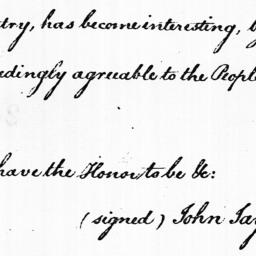 try, has become interesting,
edingly agreeable to the People
have the Honor to be &c:
(signed) John Jay